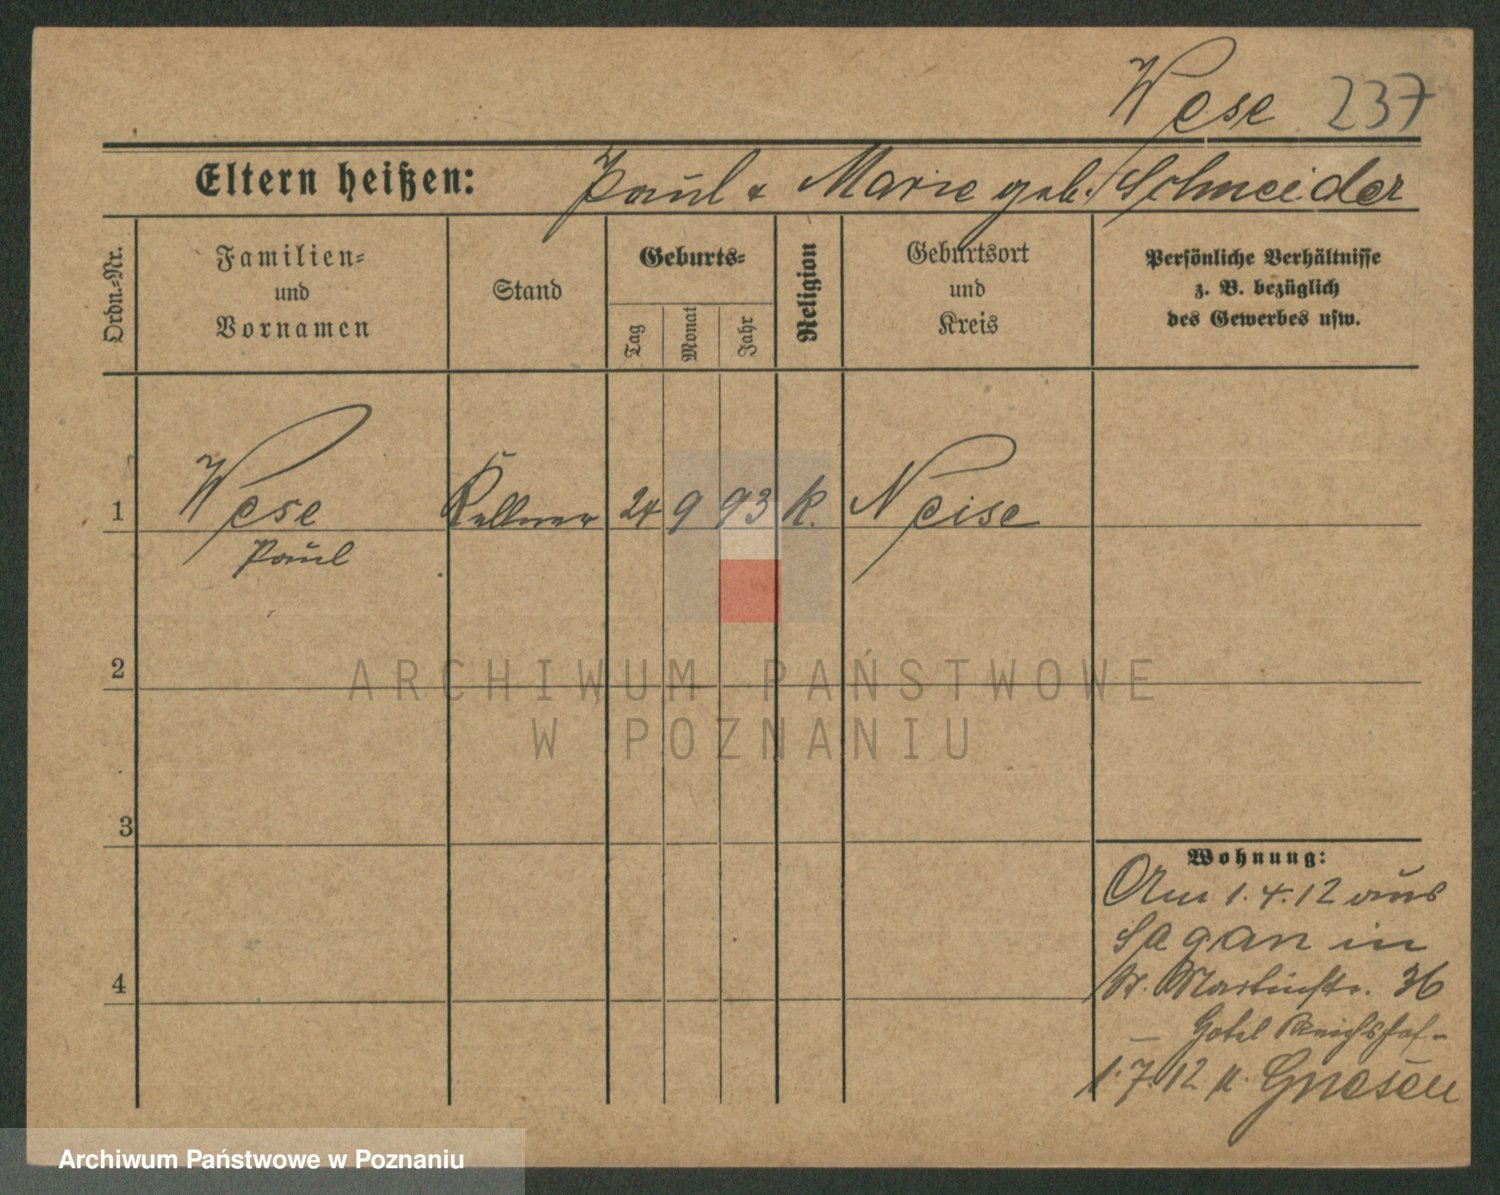 Wese 237
Eltern heißen: Paul & Marie geb. Schneider
Ordn.-Nr.
Familien-
und
Vornamen
Stand
Geburts-
Tag
Monat
Jahr
Religion
Geburtsort
und
Kreis
Persönliche Verhältnisse
z. B. bezüglich
des Gewerbes usw.
1 Wese Kellner 24 9 93 k. Neise
Paul
2
ARCHIWUM PAŃSTWOWE
W POZNANIU
3
Wohnung:
Am 1.4.12 aus
Sagan in
St. Martinstr. 36
– Hotel Reichshof –
4
1.7.12 n. Gnesen
Archiwum Państwowe w Poznaniu